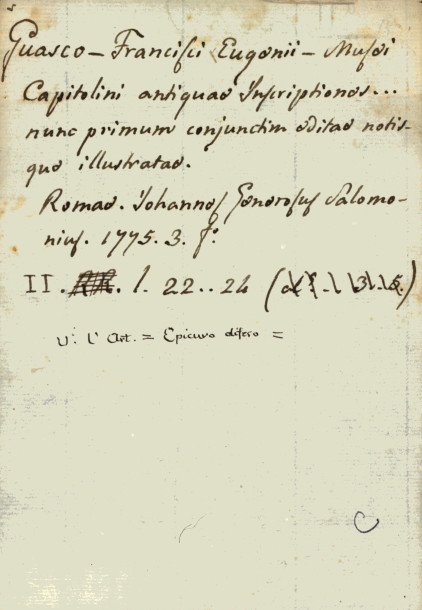 Guasco - Francisci Eugenii - Musei
Capitolini antiquae Inscriptiones...
nunc primum conjunctim editae notis-
que illustratae.
Romae. Johannes Generosus Salomo-
nius. 1775. 3. f.º
II. l. 22..24
V: l' Art. = Epicuro difeso =